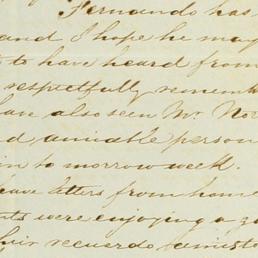 Fernando has
and I hope he may
to have heard from
respectfully rememb
have also seen Mr. Nor
d amiable person
in to morrow week.
leave letters from home
nts were enjoying a go
their recuerdo, amisto